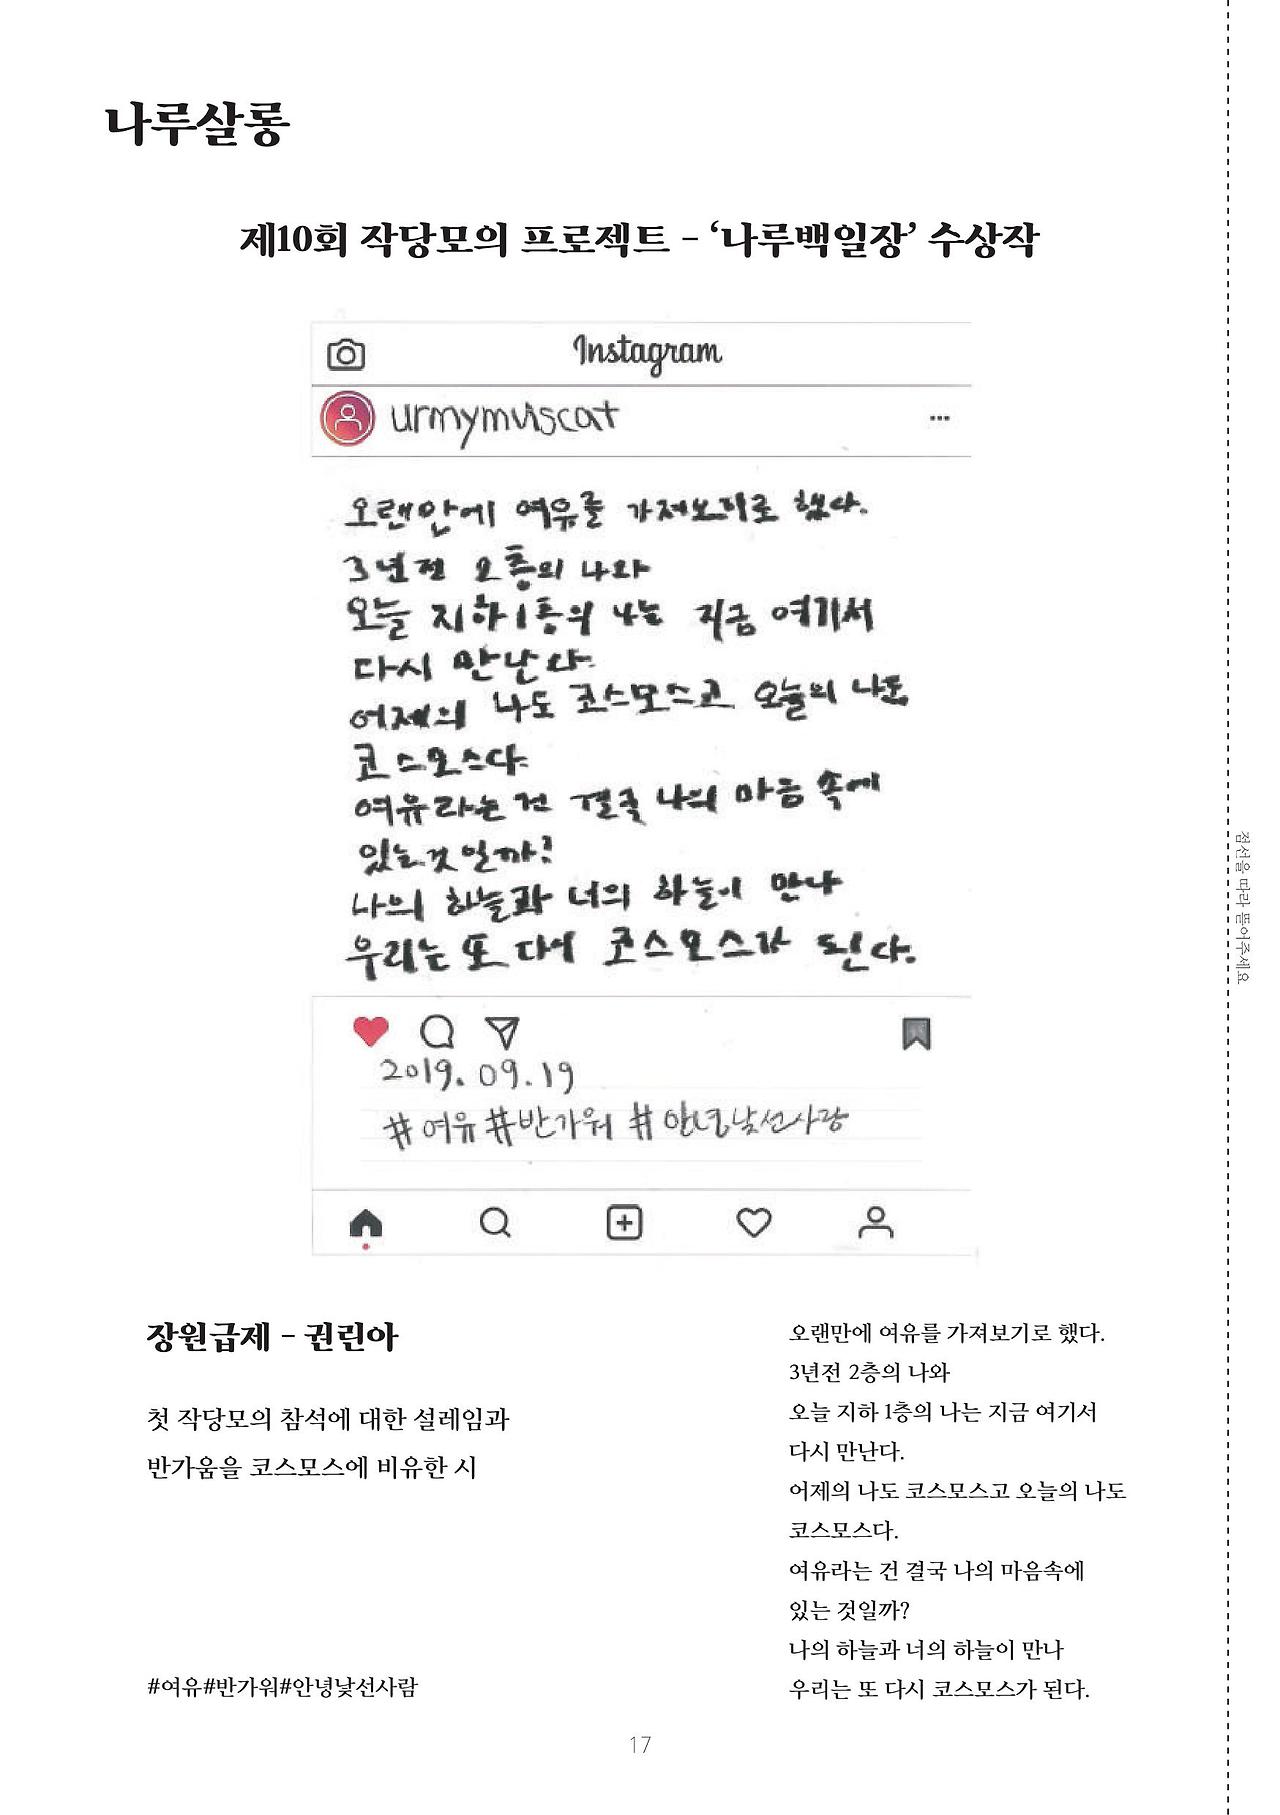 나루살롱
제10회 작당모의 프로젝트 - ‘나루백일장’ 수상작
Instagram
urmymuscat
오랜만에 여유를 가져보기로 했다.
3년전 2층의 나와
오늘 지하1층의 나는 지금 여기서
다시 만난다.
어제의 나도 코스모스고 오늘의 나도
코스모스다.
여유라는 건 결국 나의 마음 속에
있는 것일까?
나의 하늘과 너의 하늘이 만나
우리는 또 다시 코스모스가 된다.
2019.09.19
#여유 #반가워 #안녕낯선사람
장원급제 - 권린아
첫 작당모의 참석에 대한 설레임과
반가움을 코스모스에 비유한 시
#여유#반가워#안녕낯선사람
오랜만에 여유를 가져보기로 했다.
3년전 2층의 나와
오늘 지하 1층의 나는 지금 여기서
다시 만난다.
어제의 나도 코스모스고 오늘의 나도
코스모스다.
여유라는 건 결국 나의 마음속에
있는 것일까?
나의 하늘과 너의 하늘이 만나
우리는 또 다시 코스모스가 된다.
17
점선을 따라 뜯어주세요